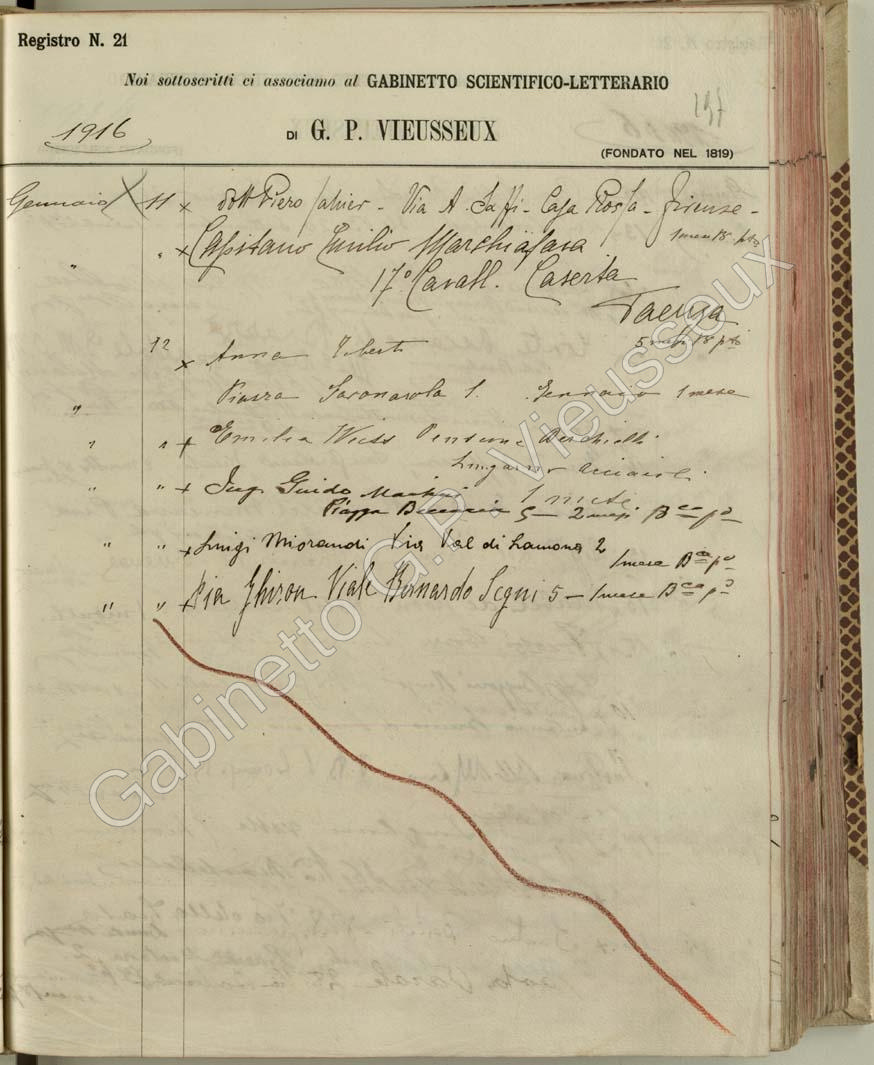 Registro N. 21
Noi sottoscritti ci associamo al GABINETTO SCIENTIFICO-LETTERARIO
197
1916
DI G. P. VIEUSSEUX
(FONDATO NEL 1819)
Gennaio 11 x Dott Piero Jahier - Via A. Saffi - Casa Rossa - Firenze -
1 mese B. pto
" " x Capitano Emilio Marchiafava
17° Cavall. Caserta
Faenza
12 5 mesi B pto
x Anna Uberti
Piazza Savonarola 1. Gennaio 1 mese
" " " x Emilia Weiss Pensione
Lungarno Acciaioli
" " x Ing. Guido 1 mese
Piazza Beccaria 5 - 2 mesi Bca po
" " x Luigi Morandi Via Val di Lamona 2
1 mese Bca po
" " x Pia Ghiron Viale Bernardo Segni 5 - 1 mese Bca po
Gabinetto G.P. Vieusseux